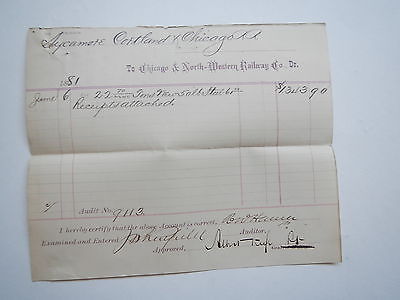 Sycamore Cortland & Chicago RR
To Chicago & North-Western Railway Co. Dr.
1881
June 6 22 Tons New Steel $1343 90
Receipts attached
Audit No. 9113
I hereby certify that the above Account is correct,
Auditor.
Examined and Entered
Approved,